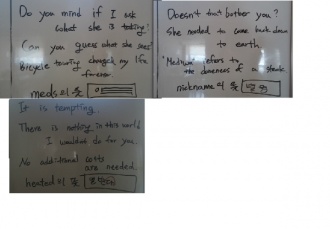 Do you mind if I ask
what she is taking?
Can you guess what she sees?
Bicycle touring changed my life
forever
meds의 뜻
Doesn't that bother you?
She needed to come back down
to earth.
"Medium" refers to
the doneness of a steak
nickname의 뜻
It is tempting.
There is nothing in this world
I wouldn't do for you.
No additional costs
are needed.
heated의 뜻